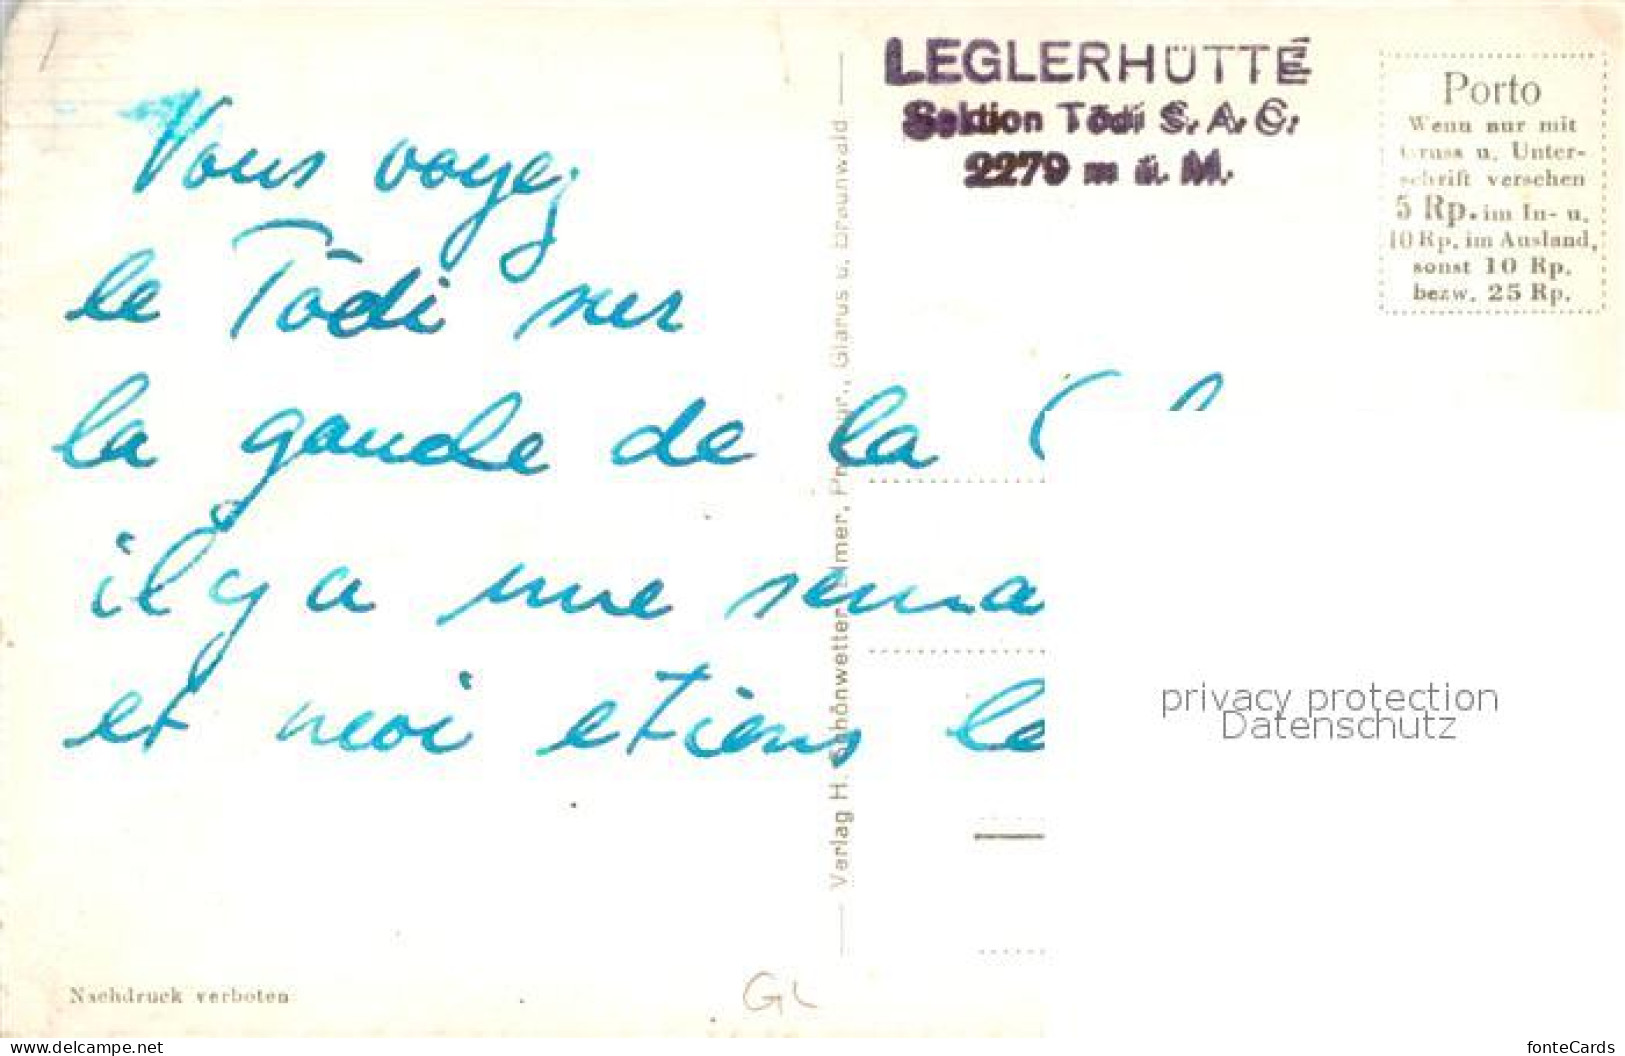 LEGLERHÜTTE
Sektion Tödi S.A.C.
2279 m ü. M.
Porto
Wenn nur mit
Gruss u. Unter-
schrift versehen
5 Rp. im In- u.
10 Rp. im Ausland,
sonst 10 Rp.
bezw. 25 Rp.
Vous voyez
le Tödi sur
la gauche de la
il y a une sema
et moi etiens le
Verlag H. Schönwetter-Elmer, Glarus u. Braunwald
privacy protection
Datenschutz
Nachdruck verboten
GL
www.delcampe.net
fonteCards